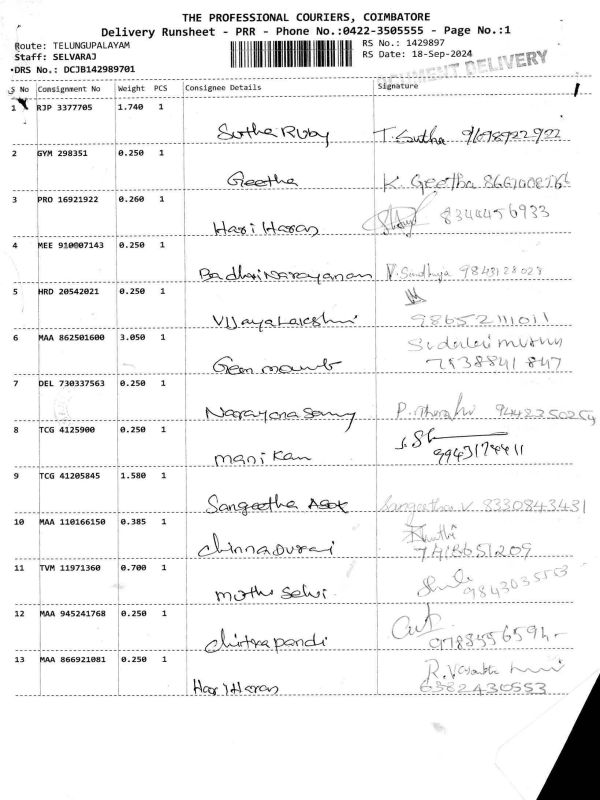 THE PROFESSIONAL COURIERS, COIMBATORE
Delivery Runsheet - PRR - Phone No.:0422-3505555 - Page No.:1
Route: TELUNGUPALAYAM RS No.: 1429897
Staff: SELVARAJ RS Date: 18-Sep-2024
DRS No.: DCJB142989701 DELIVERY
S No Consignment No Weight PCS Consignee Details Signature
1 RJP 3377705 1.740 1
Sutha Ruby T. Sutha 9698922922
2 GYM 298351 0.250 1
Geetha K. Geetha
3 PRO 16921922 0.260 1
Hari Haran 8344456933
4 MEE 910007143 0.250 1
Badhri Narayanan V. Sandhya 9843128028
5 HRD 20542021 0.250 1
Vijaya Lakshmi
6 MAA 862501600 3.050 1
7538841847
7 DEL 730337563 0.250 1
Narayana Samy P. 9442350254
8 TCG 4125900 0.250 1
mani kan 9943174411
9 TCG 41205845 1.580 1
Sangeetha Asok Sangeetha V. 8330843431
10 MAA 110166150 0.385 1
Chinna Durai 7418651209
11 TVM 11971360 0.700 1
muthu Selvi 9843035553
12 MAA 945241768 0.250 1
Chithra pandi
13 MAA 866921081 0.250 1
Hari Haran R.
6382430553